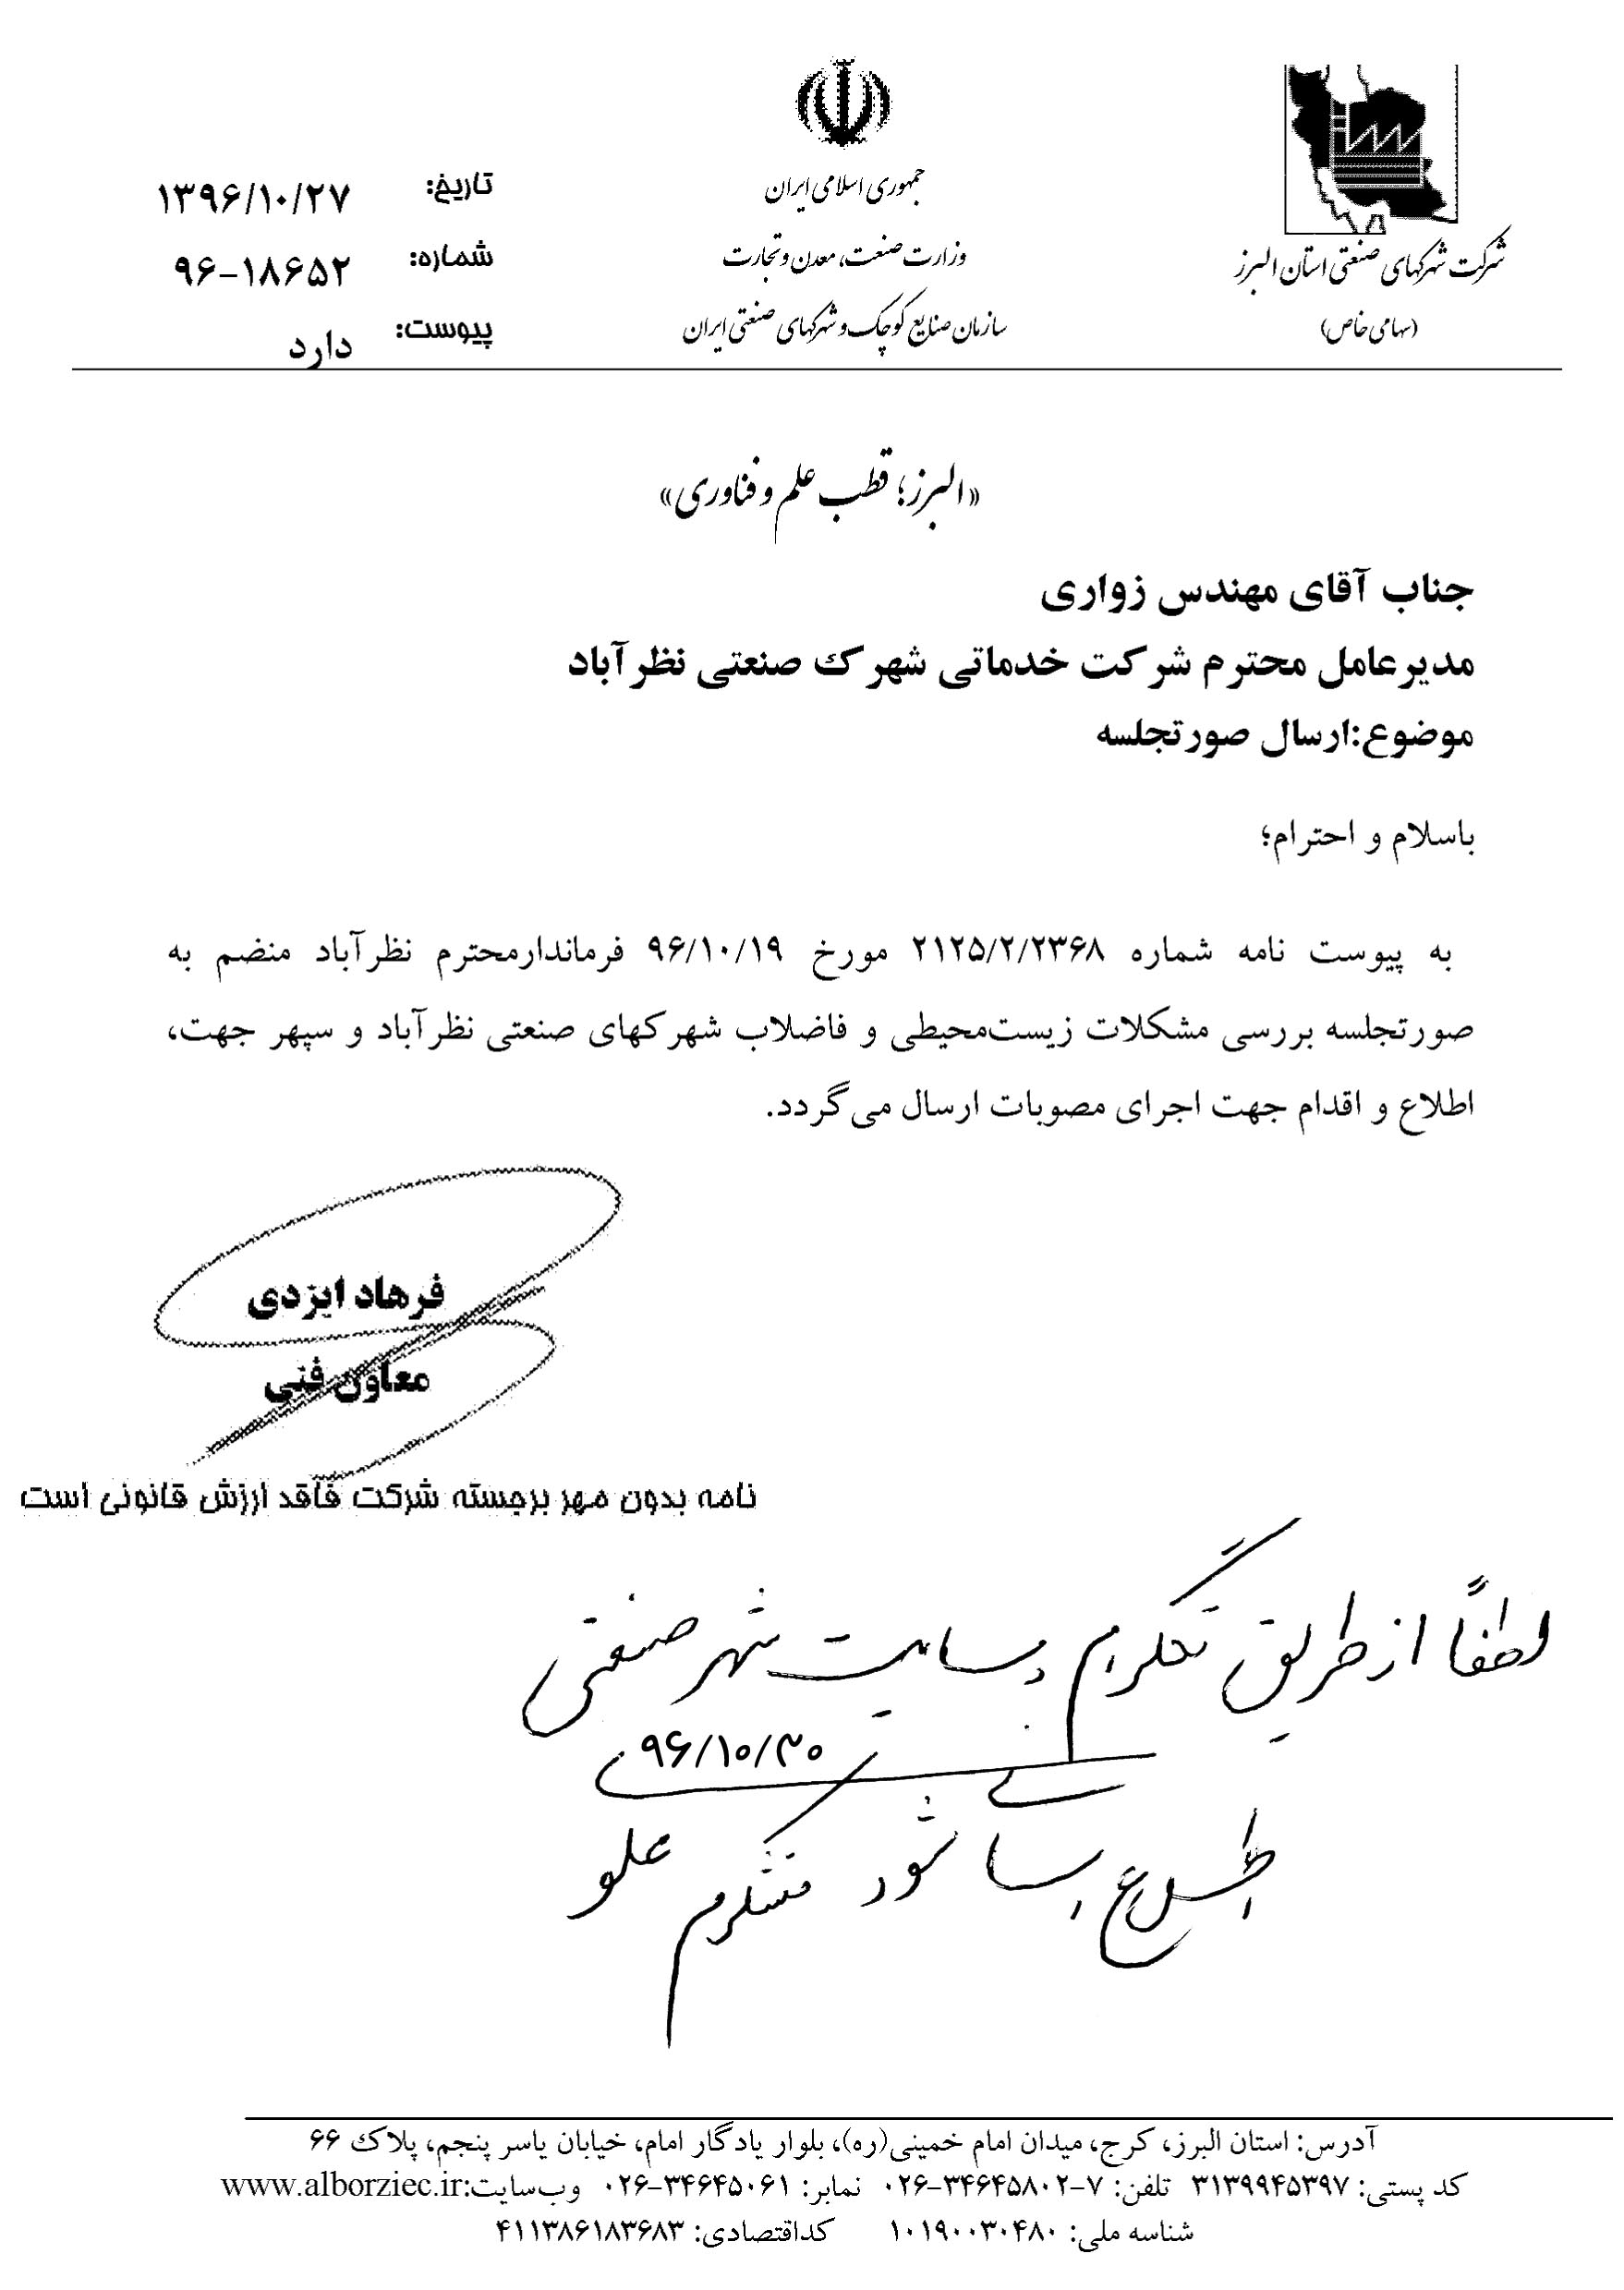 جمهوری اسلامی ایران
وزارت صنعت، معدن و تجارت
سازمان صنایع کوچک و شهرکهای صنعتی ایران
شرکت شهرکهای صنعتی استان البرز
(سهامی خاص)
تاریخ: ۱۳۹۶/۱۰/۲۷
شماره: ۹۶-۱۸۶۵۲
پیوست: دارد
«البرز؛ قطب علم و فناوری»
جناب آقای مهندس زواری
مدیرعامل محترم شرکت خدماتی شهرک صنعتی نظرآباد
موضوع:ارسال صورتجلسه
باسلام و احترام؛
به پیوست نامه شماره ۲۱۲۵/۲/۲۳۶۸ مورخ ۹۶/۱۰/۱۹ فرماندارمحترم نظرآباد منضم به
صورتجلسه بررسی مشکلات زیست‌محیطی و فاضلاب شهرکهای صنعتی نظرآباد و سپهر جهت،
اطلاع و اقدام جهت اجرای مصوبات ارسال می‌گردد.
فرهاد ایزدی
معاون فنی
نامه بدون مهر برجسته شرکت فاقد ارزش قانونی است
لطفاً از طریق تلگرام سایت شهر صنعتی
۹۶/۱۰/۳۰
شود متشکرم
آدرس: استان البرز، کرج، میدان امام خمینی(ره)، بلوار یادگار امام، خیابان یاسر پنجم، پلاک ۶۶
کد پستی: ۳۱۳۹۹۴۵۳۹۷ تلفن: ۷-۰۲۶-۳۴۶۴۵۸۰۲ نمابر: ۰۲۶-۳۴۶۴۵۰۶۱ وب‌سایت:www.alborziec.ir
شناسه ملی: ۱۰۱۹۰۰۳۰۴۸۰ کداقتصادی: ۴۱۱۳۸۶۱۸۳۶۸۳